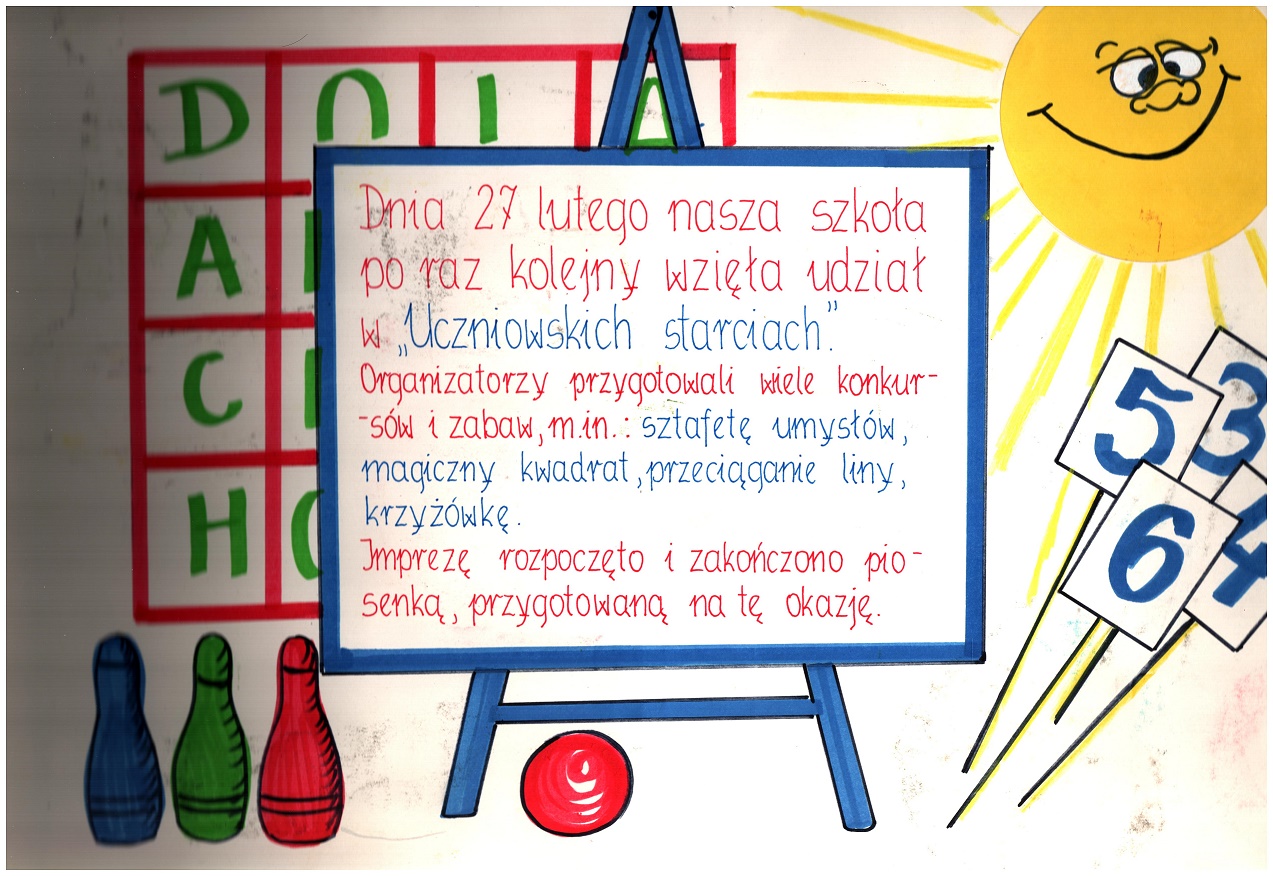 D O I A
A
C
H
Dnia 27 lutego nasza szkoła
po raz kolejny wzięła udział
w „Uczniowskich starciach”.
Organizatorzy przygotowali wiele konkur-
-sów i zabaw, m.in.: sztafetę umysłów,
magiczny kwadrat, przeciąganie liny,
krzyżówkę.
Imprezę rozpoczęto i zakończono pio-
senką, przygotowaną na tę okazję.
5
3
6
4